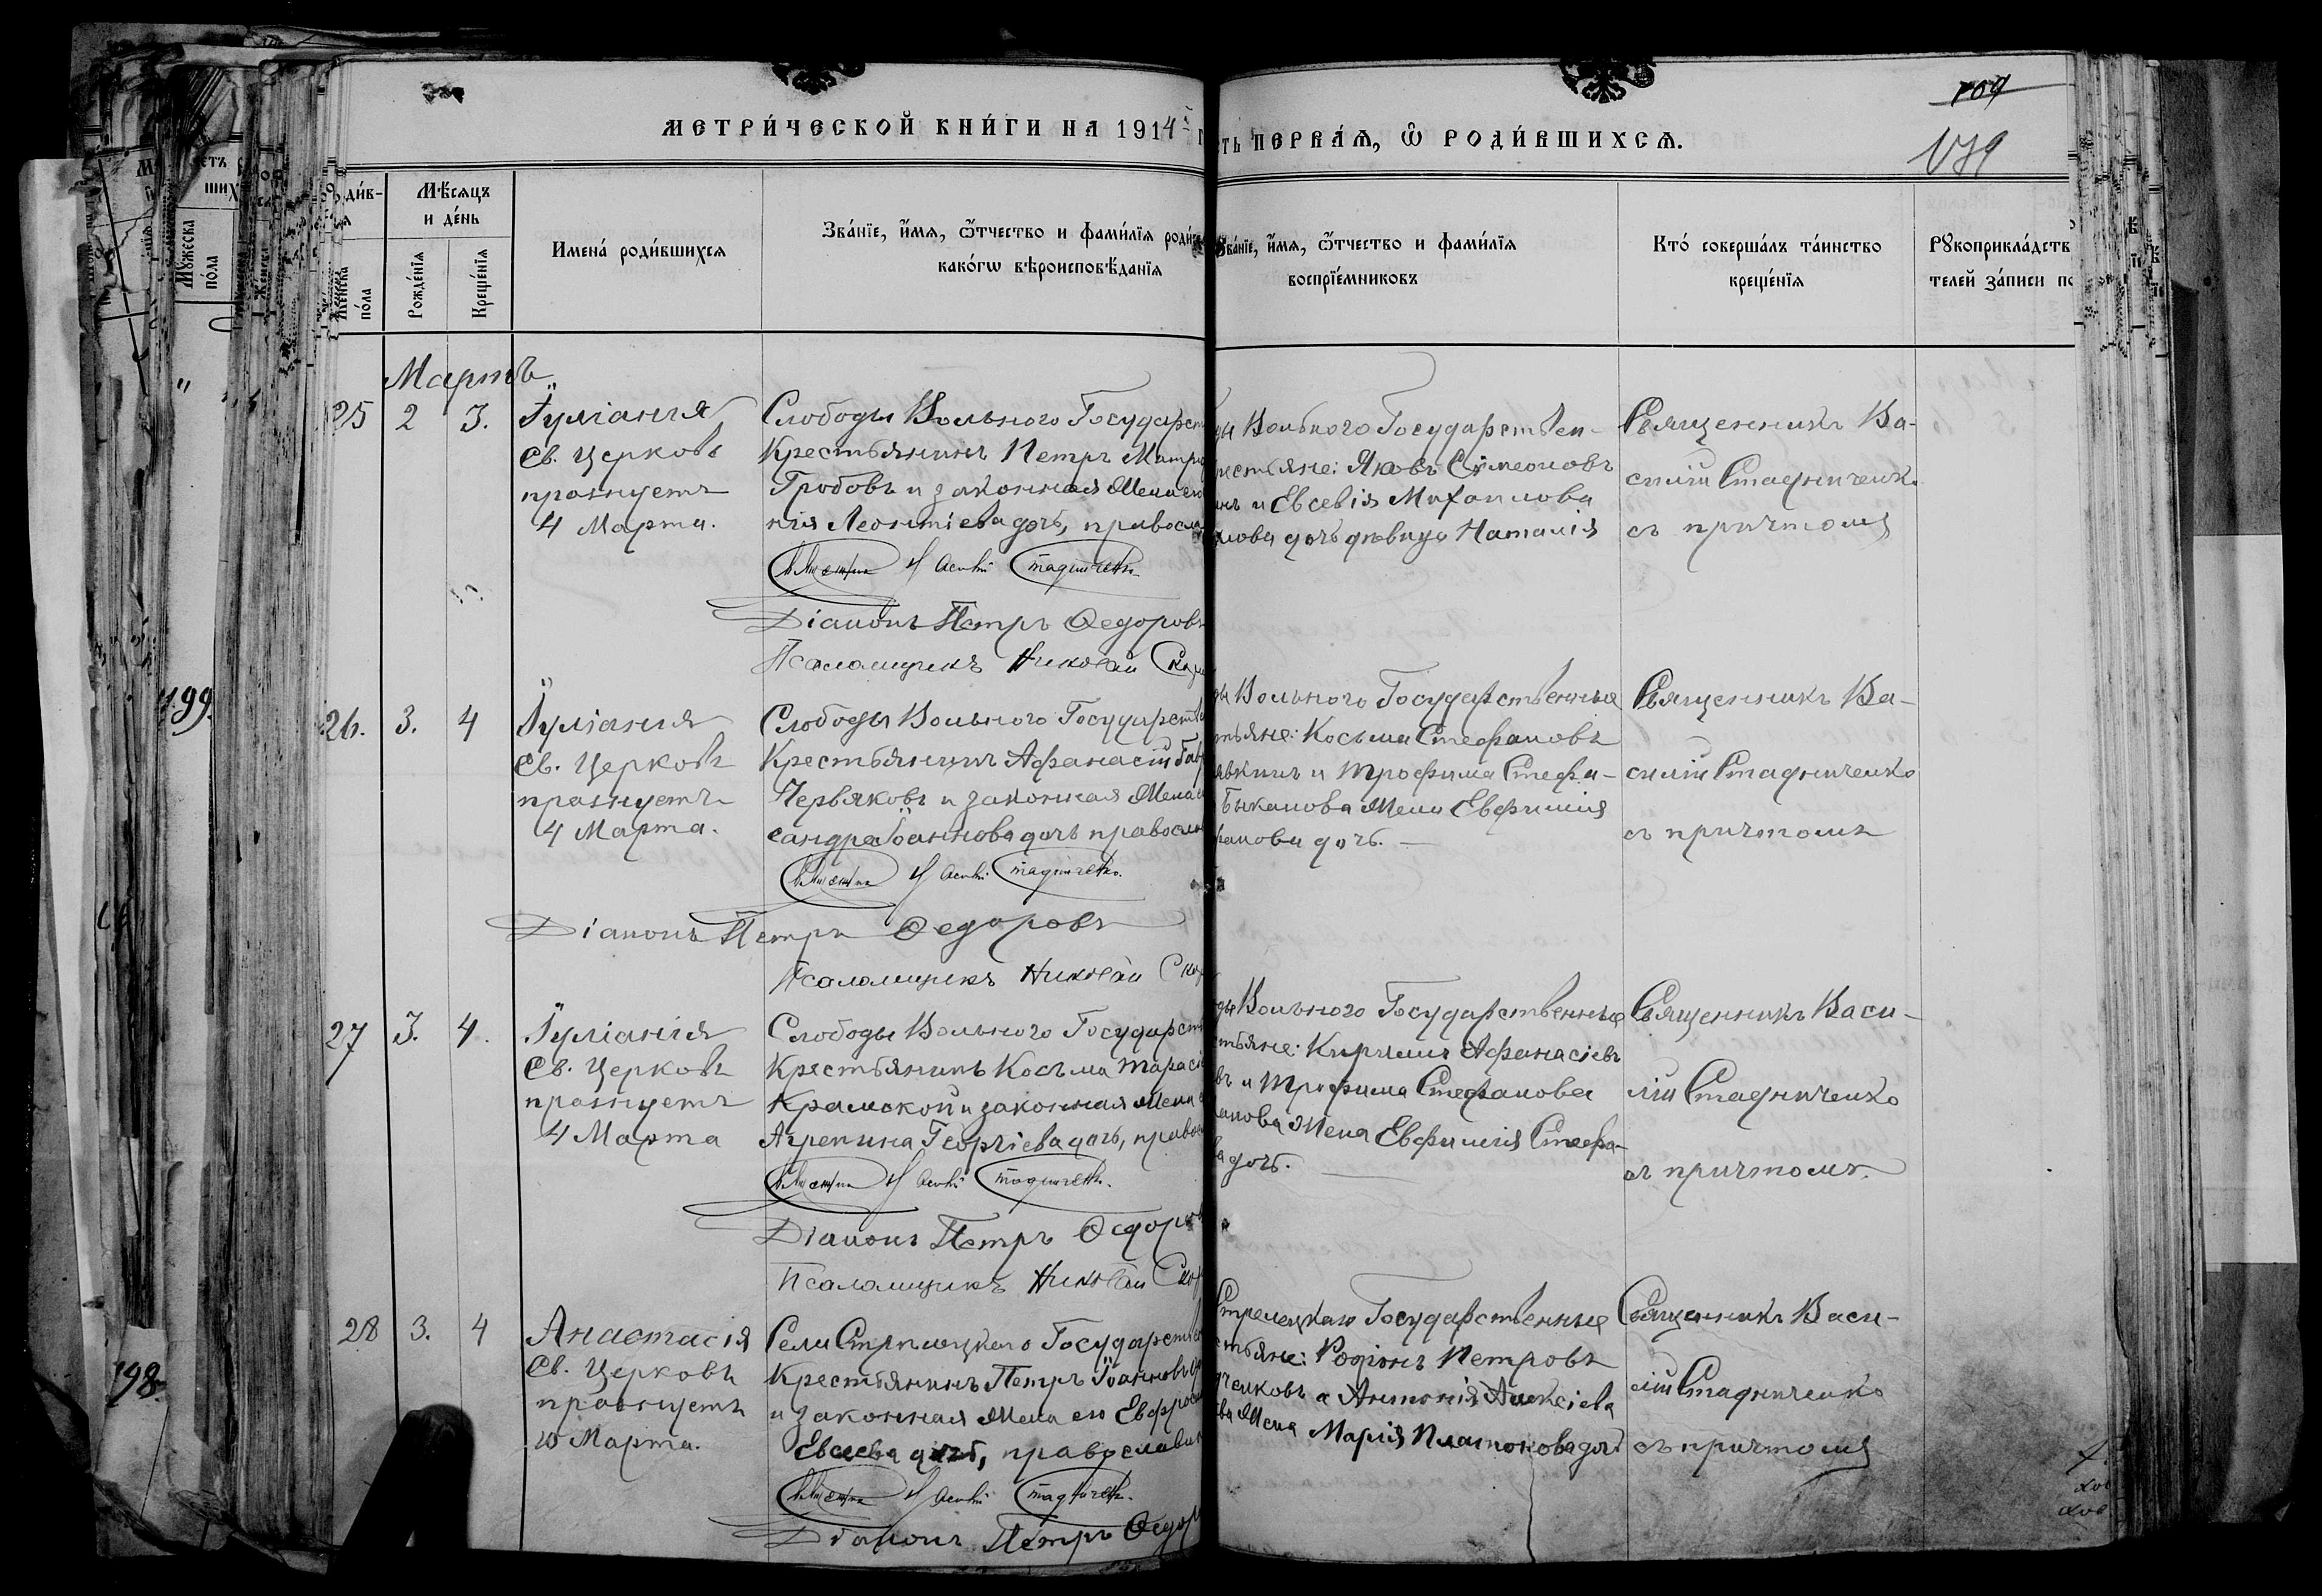 МЕТРИ́ЧЕСКОЙ КНИ́ГИ НА 1914
ПЕРВА́Я, Ѡ РОДИ́ВШИХСЯ.
109
179
Мѣсяцъ
и де́нь
Же́нска
по́ла
Рожде́нїя
Креще́нїя
Имена̀ роди́вшихся
Зва́нїе, и́мя, ѻ҆́тчество и фами́лїя роди́
како́гѡ вѣроисповѣ́данїя
Зва́нїе, и́мя, ѻ҆́тчество и фами́лїя
воспрїе́мниковъ
Кто́ соверша́лъ та́инство
креще́нїя
Рꙋкоприкла́дств
телей за́писи по
Мꙋ́жеска
по́ла
Мартъ
25 2 3. Іуліанія
Св. Церковь
празнуетъ
4 Марта.
Слободы Вольнаго Государст
Крестьянинъ Петръ Митро
Гробовъ и законная жена ег
нія Леонтіева дочь, правосла
Діаконъ Петръ Ѳедоровъ
Псаломщикъ Николай
ды Вольнаго Государствен-
рестьяне: Яковъ Симеоновъ
инъ и Евсевія Михаилова
лова дочь дѣвица Наталія
Священникъ Ва-
силій Стадниченко
съ причтомъ
199.
26. 3. 4 Іуліанія
Св. Церковь
празнуетъ
4 Марта.
Слободы Вольнаго Государств
Крестьянинъ Аѳанасій Гав
Червяковъ и законная жена
сандра Іоаннова дочь правосла
Діаконъ Петръ Ѳедоровъ
Псаломщикъ Николай
ды Вольнаго Государственные
тьяне: Косьма Стефановъ
явкинъ и Трофима Стефа-
Быканова жена Евфимія
фанова дочь.
Священникъ Ва-
силій Стадниченко
съ причтомъ
27 3. 4. Іуліанія
Св. Церковь
празнуетъ
4 Марта
Слободы Вольнаго Государст
Крестьянинъ Косьма Тарасі
Крамской и законная жена
Агрепина Георгіева дочь, право
Діаконъ Петръ Ѳедоров
Псаломщикъ Николай
ды Вольнаго Государственные
стьяне: Кириллъ Аѳанасіевъ
въ и Трофима Стефанова
анова жена Евфимія Стефа-
ва дочь.
Священникъ Васи-
лій Стадниченко
съ причтомъ.
198
28 3. 4 Анастасія
Св. Церковь
празнуетъ
10 Марта.
Села Стрѣлецкаго Государств
Крестьянинъ Петръ Іоанновъ
и законная жена его Евфрос
Евсеева дочь, православн
Діаконъ Петръ Ѳедор
Стрелецкаго Государственные
стьяне: Родіонъ Петровъ
ченковъ и Антонія Алексіева
ва жена Марія Платонова дочь
Священникъ Васи-
лій Стадниченко
съ причтомъ